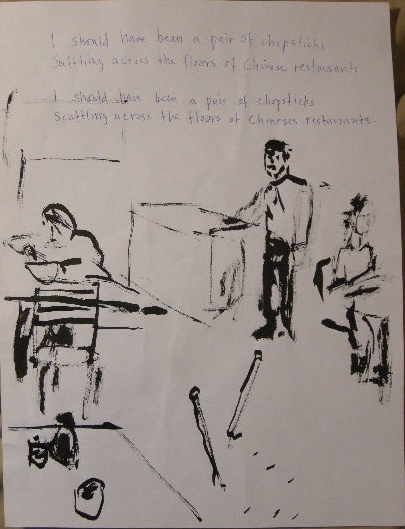 I should have been a pair of chopsticks
Scuttling across the floors of Chinese restaurants
I should have been a pair of chopsticks
Scuttling across the floors of Chineses restaurants.